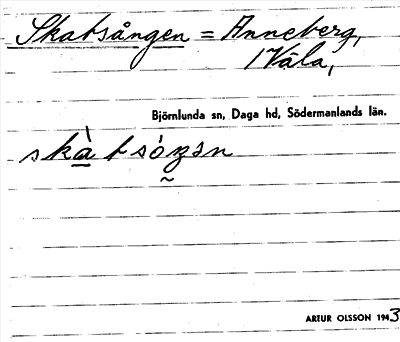 Skatsången = Anneberg,
1 Våla,
Björnlunda sn, Daga hd, Södermanlands län.
skàtsózən
ARTUR OLSSON 1943